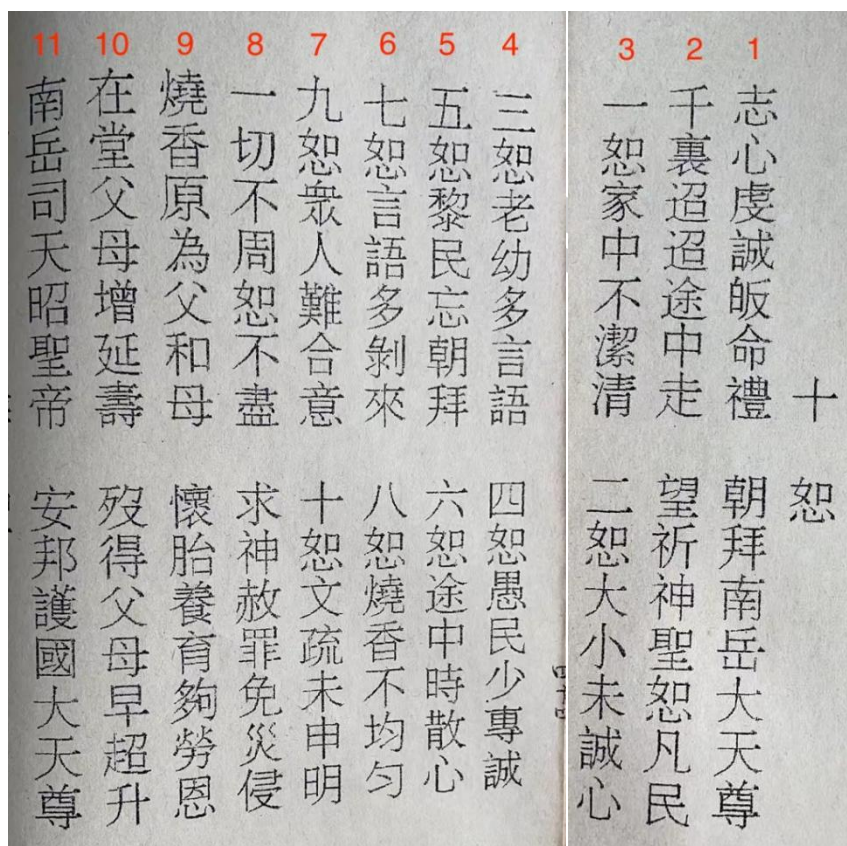 十恕
1 志心虔誠皈命禮 朝拜南岳大天尊
2 千裏迢迢途中走 望祈神聖恕凡民
3 一恕家中不潔清 二恕大小未誠心
4 三恕老幼多言語 四恕愚民少專誠
5 五恕黎民忘朝拜 六恕途中時散心
6 七恕言語多剝來 八恕燒香不均勻
7 九恕衆人難合意 十恕文疏未申明
8 一切不周恕不盡 求神赦罪免災侵
9 燒香原為父和母 懷胎養育夠勞恩
10 在堂父母增延壽 歿得父母早超升
11 南岳司天昭聖帝 安邦護國大天尊